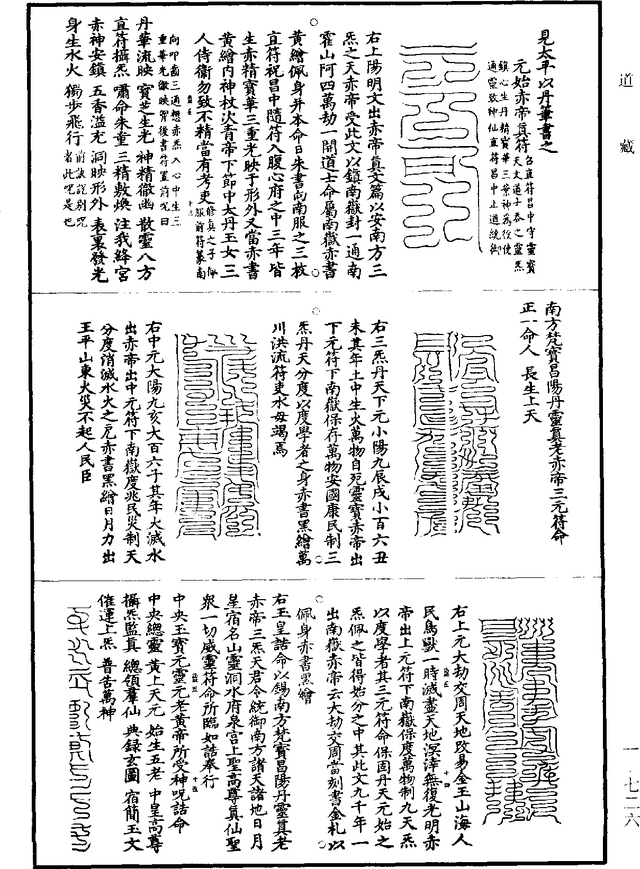 道藏
見太平以丹筆書之
元始赤帝真符
右上陽明文出赤帝真文篇以安南方三
炁之天赤帝受此文以鎮南嶽封一通南
霍山阿四萬劫一開道士命屬南嶽赤書
黄繒佩身并本命日朱書向南服之三枚
直符祝昌中隨符入腹心府之中三年皆
生赤精寶華三重光映于形外又當赤書
黄繒内神杖次青帝下節中太丹玉女三
人侍衛勿致不精當有考吏
向叩齒三通想赤炁入心中生三
重華光徹映
丹華流映 寶芝生光 神精徹幽 散靈八方
直符攝炁 嘯命朱童 三精敷煥 注我絳宮
赤神安鎮 五香溢充 洞映形外 表裏發光
身生水火 獨步飛行
南方梵寶昌陽丹靈真老赤帝三元符命
正一命人 長生上天
右三炁丹天下元小陽九辰戌小百六丑
未其年土中生火萬物自死靈寶赤帝出
下元符下南嶽保存萬物安國康民制三
炁丹天分度以度學者之身赤書黑繒萬
川洪流符吏水母竭焉
右中元大陽九亥大百六子其年火滅水
出赤帝出中元符下南嶽度兆民災制天
分度消滅水火之戹赤書黑繒日月力出
王平山東火災不起人民臣
右上元大劫交周天地改易金玉山海人
民鳥獸一時滅盡天地溟涬無復光明赤
帝出上元符下南嶽保度萬物制九天炁
以度學者其三元符命保固丹天元始之
炁佩之皆得始分之中其此文九千年一
出南嶽赤帝云大劫交周當刻書金札以
佩身赤書黑繒
右玉皇誥命以錫南方梵寶昌陽丹靈真老
赤帝三炁天君令統御南方諸天諸地日月
星宿名山靈洞水府泉宮上聖高尊真仙聖
衆一切威靈符命所臨如誥奉行
中央玉寶元靈元老黄帝所受神呪誥命
中央總靈 黄上天元 始生五老 中皇高尊
攝炁監真 總領羣仙 典錄玄圖 宿簡玉文
催運上炁 普告萬神
一・七二六